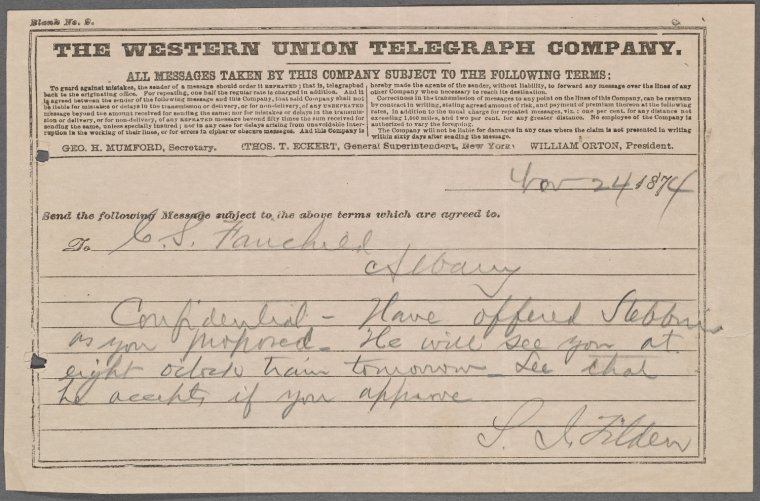 Blank No. 2.
THE WESTERN UNION TELEGRAPH COMPANY.
ALL MESSAGES TAKEN BY THIS COMPANY SUBJECT TO THE FOLLOWING TERMS:
To guard against mistakes, the sender of a message should order it REPEATED; that is, telegraphed
back to the originating office. For repeating, one half the regular rate is charged in addition. And it
is agreed between the sender of the following message and this Company, that said Company shall not
be liable for mistakes or delays in the transmission or delivery, or for non-delivery, of any UNREPEATED
message beyond the amount received for sending the same; nor for mistakes or delays in the transmis-
sion or delivery, or for non-delivery, of any REPEATED message beyond fifty times the sum received for
sending the same, unless specially insured; nor in any case for delays arising from unavoidable inter-
ruption in the working of their lines, or for errors in cipher or obscure messages. And this Company is
hereby made the agents of the sender, without liability, to forward any message over the lines of any
other Company when necessary to reach its destination.
Correctness in the transmission of messages to any point on the lines of this Company, can be INSURED
by contract in writing, stating agreed amount of risk, and payment of premium thereon at the following
rates, in addition to the usual charge for repeated messages, viz.: one per cent. for any distance not
exceeding 1,000 miles, and two per cent. for any greater distance. No employee of the Company is
authorized to vary the foregoing.
The Company will not be liable for damages in any case where the claim is not presented in writing
within sixty days after sending the message.
GEO. H. MUMFORD, Secretary. THOS. T. ECKERT, General Superintendent, New York. WILLIAM ORTON, President.
Nov 24 1874
Send the following Message subject to the above terms which are agreed to.
To C. S. Fairchild
Albany
Confidential - Have offered Stebbins
as you proposed - He will see you at
eight oclock train tomorrow - See that
he accepts if you approve
S. J. Tilden